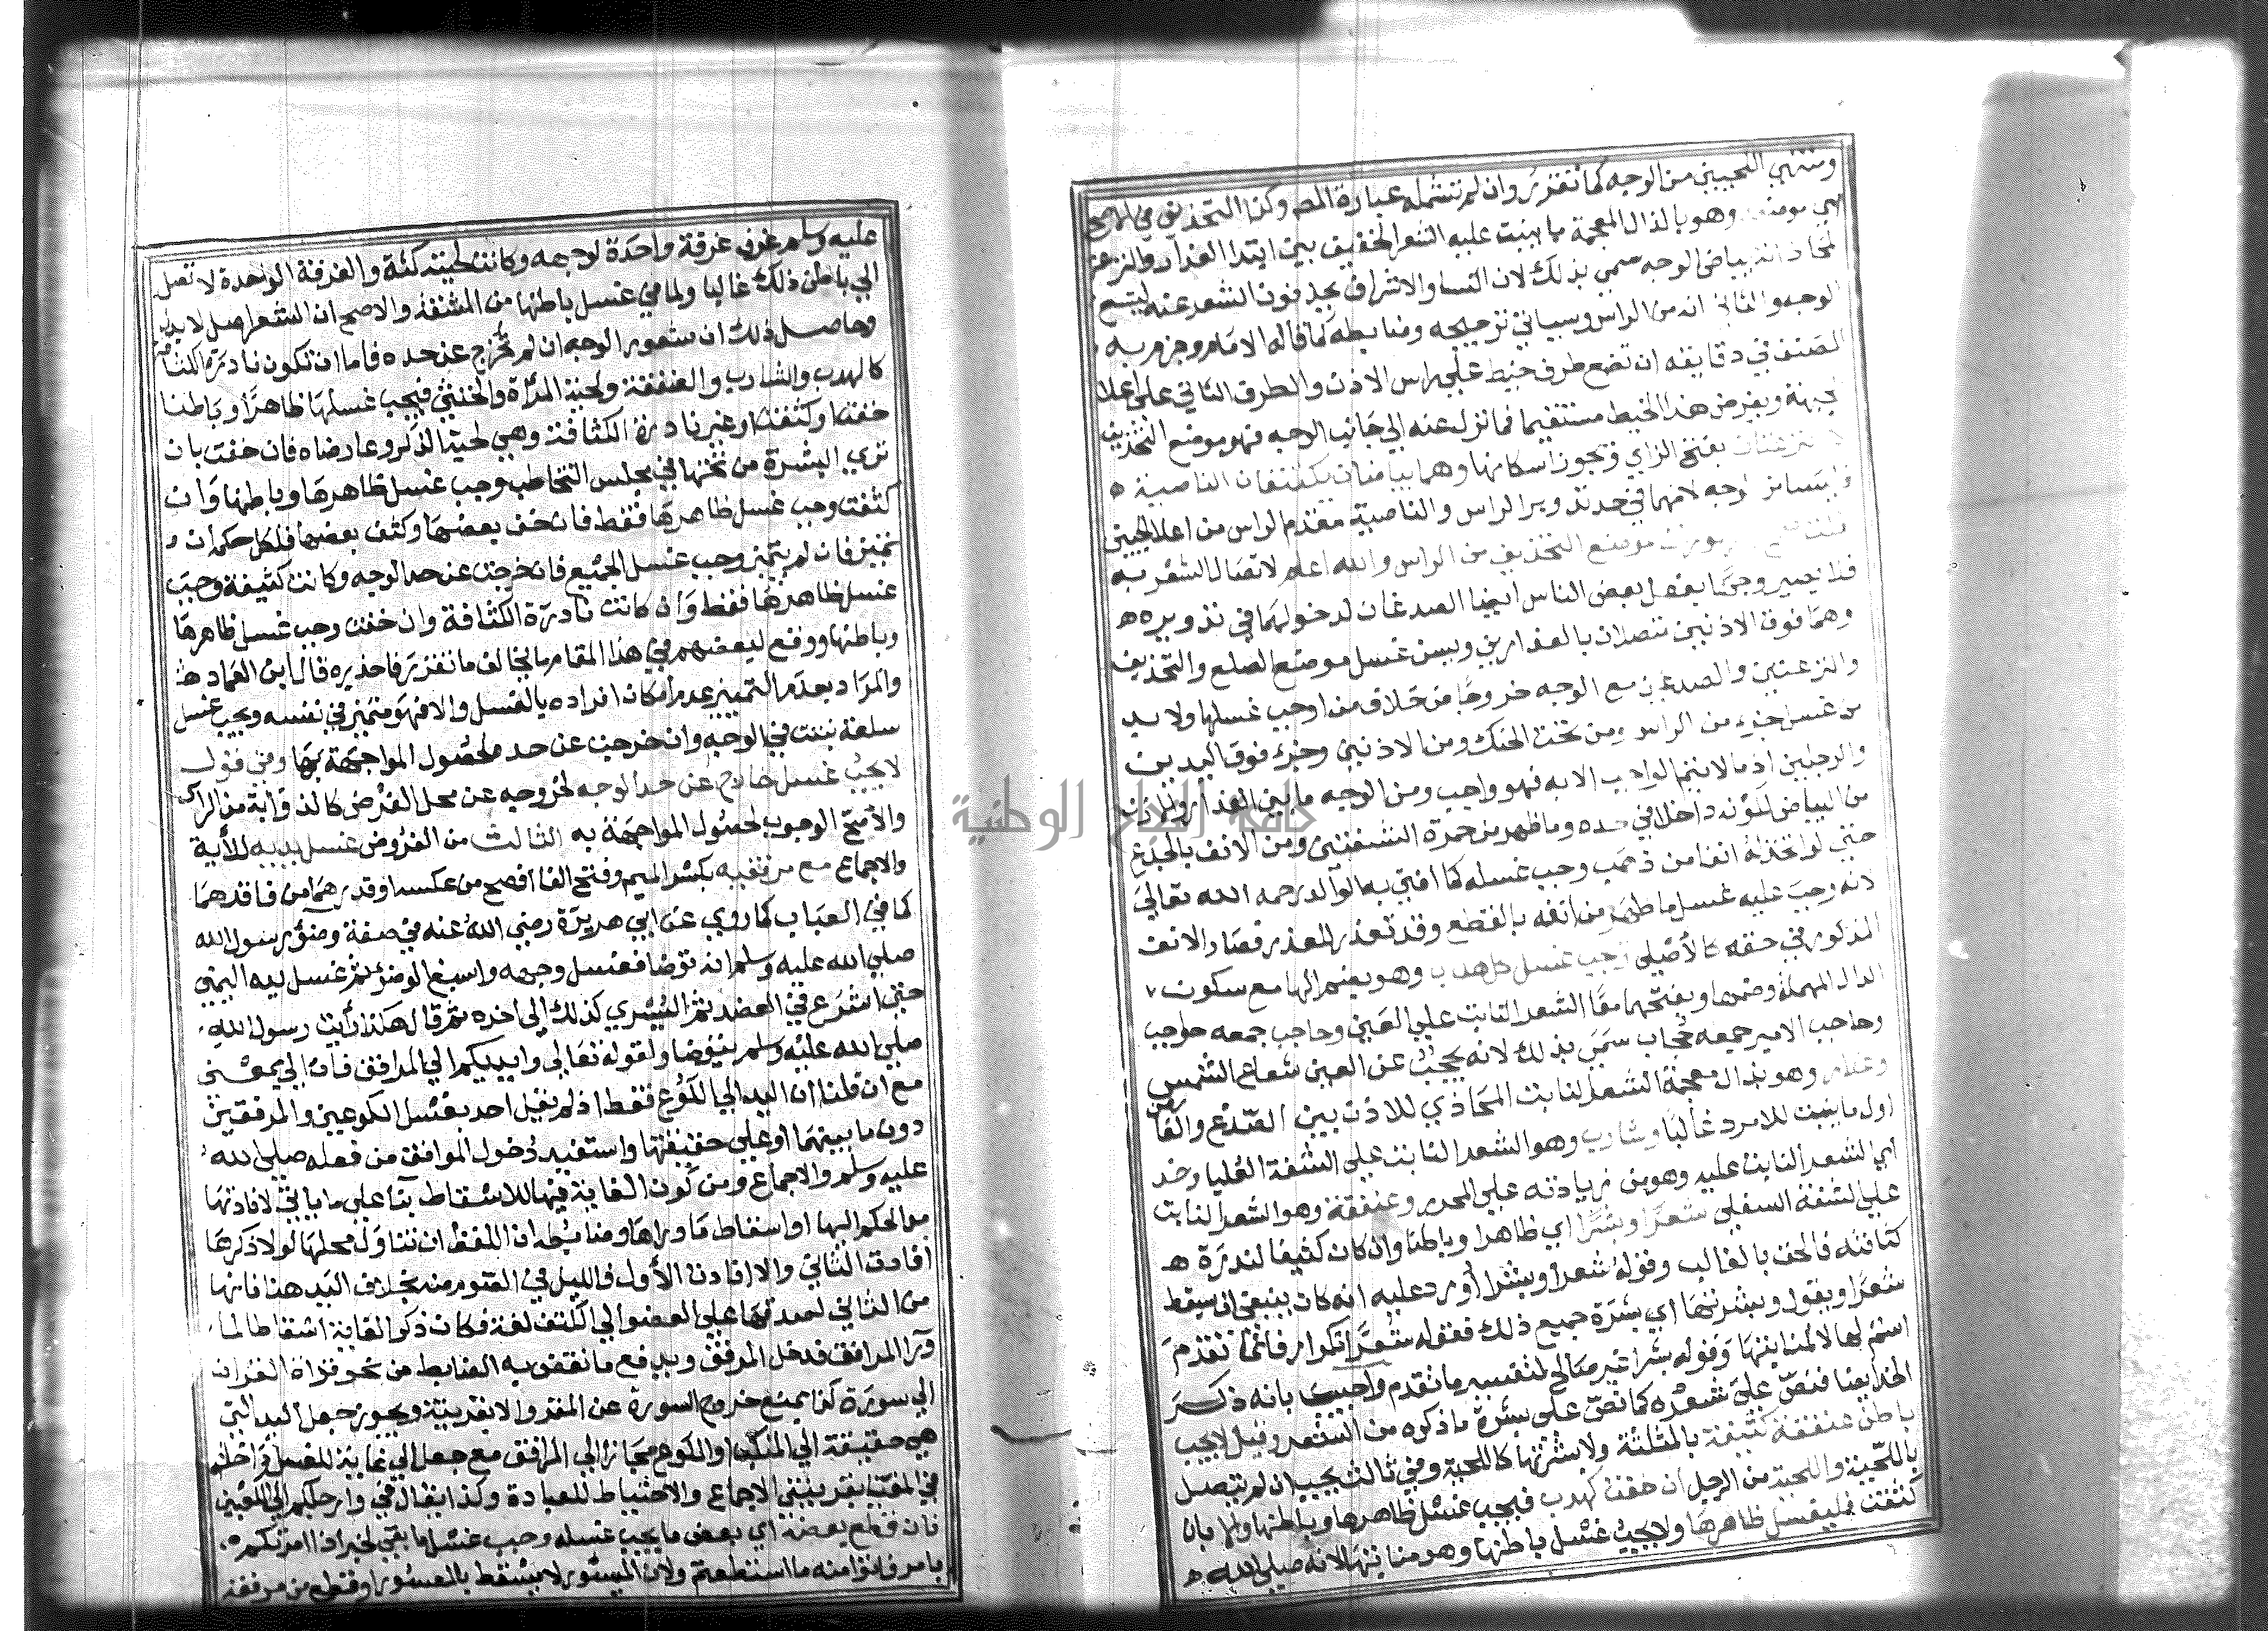 ومنتهي اللحيين من الوجه كما تقرر وان لم تشمله عبارة المص وكذا التحذيف في الاصح
اي موضعه وهو بالذال المعجمة ما ينبت عليه الشعر الخفيف بين ابتدا العذار والنزعة
لمحاذاته بياض الوجه سمي بذلك لان النسا والاشراف يحذفون الشعر عنه ليتسع
الوجه والثاني انه من الراس وسياتي ترجيحه وضابطه كما قاله الامام وجزم به
المصنف في دقايقه ان تضع طرف خيط علي راس الاذن والطرف الثاني علي اعلا
الجبهة ويفرض هذا الخيط مستقيما فما نزل عنه الي جانب الوجه فهو موضع التحذيف
لا النزعتان بفتح الزاي ويجوز اسكانها وهما بياضان يكتنفان الناصية ه
فليستا من الوجه لانهما في حد تدوير الراس والناصية مقدم الراس من اعلا الجبين
قلت صحح الجمهور ان موضع التحذيف من الراس والله اعلم لاتصال الشعر به
فلا يصير وجها بفعل بعض الناس ايضا الصدغان لدخولهما في تدويره ه
وهما فوق الاذنين متصلان بالعذارين ويسن غسل موضع الصلع والتحذيف
والنزعتين والصدغين مع الوجه خروجا من خلاف من اوجب غسلها ولا بد
من غسل جزء من الراس ومن تحت الحنك ومن الاذنين وجزء فوق اليدين
والرجلين اذ ما لا يتم الواجب الا به فهو واجب ومن الوجه ما بين العذار والاذن
من البياض لكونه داخلا في حده وما ظهر من حمرة الشفتين ومن الانف بالجدع
حتي لو اتخذ له انفا من ذهب وجب غسله كما افتي به الوالد رحمه الله تعالي
لانه وجب عليه غسل ما ظهر من انفه بالقطع وقد تعذر للعذر فصار الانف
المذكور في حقه كالاصلي ويجب غسل كل هدب وهو بضم الها مع سكون
الدال المهملة وضمها وبفتحهما معا الشعر النابت علي العين وحاجب جمعه حواجب
وحاجب الامير جمعه حجاب سمي بذلك لانه يحجب عن العين شعاع الشمس
وعذار وهو بذال معجمة الشعر النابت المحاذي للاذن بين الصدغ والعارض
اول ما ينبت للامرد غالبا وشارب وهو الشعر النابت علي الشفة العليا وخد
اي الشعر النابت عليه وهو من زيادته علي المحرر وعنفقة وهو الشعر النابت
علي الشفة السفلي شعرا وبشرا اي ظاهرا وباطنا وان كان كثيفا لندرة ه
كثافته فالحق بالغالب وقوله شعرا وبشرا اورد عليه انه كان ينبغي ان يسقط
شعرا ويقول وبشرتها اي بشرة جميع ذلك فقوله شعرا تكرار فان ما تقدم
اسم لها لا لمنابتها وقوله بشرا غير صالح لتفسير ما تقدم واجيب بانه ذكر
الخد ايضا فنص علي شعره كما نص علي بشرة ما ذكره من الشعر وقيل لا يجب
باطن عنفقة كثيفة بالمثلثة ولا بشرتها كاللحية وفي ثالث يجب ان لم تتصل
باللحية واللحية من الرجل ان خفت كهدب فيجب غسل ظاهرها وباطنها والا بان
كثفت فليغسل ظاهرها ولا يجب غسل باطنها وهو منابتها لانه صلي الله ه
عليه وسلم غرف غرفة واحدة لوجهه وكانت لحيته كثة والغرفة الواحدة لا تصل
الي باطن ذلك غالبا ولما في غسل باطنها من المشقة والاصح ان الشعر اصل لا بدل
وحاصل ذلك ان شعور الوجه ان لم تخرج عن حده فاما ان تكون نادرة الكثافة
كالهدب والشارب والعنفقة ولحية المراة والخنثي فيجب غسلها ظاهرا وباطنا
خفت او كثفت او غير نادرة الكثافة وهي لحية الذكر وعارضاه فان خفت بان
تري البشرة من تحتها في مجلس التخاطب وجب غسل ظاهرها وباطنها وان
كثفت وجب غسل ظاهرها فقط فان خف بعضها وكثف بعضها فلكل حكمه ان
تميز فان لم يتميز وجب غسل الجميع فان خرجت عن حد الوجه وكانت كثيفة وجب
غسل ظاهرها فقط وان كانت نادرة الكثافة وان خفت وجب غسل ظاهرها
وباطنها ووقع لبعضهم في هذا المقام ما يخالف ما تقرر فاحذره قال ابن العماد ه
والمراد بعدم التمييز عدم امكان افراده بالغسل والا فهو متميز في نفسه ويجب غسل
سلعة نبتت في الوجه وان خرجت عن حده لحصول المواجهة بها وفي قول
لا يجب غسل خارج عن حد الوجه لخروجه عن محل الفرض كالذوابة من الراس
والاصح الوجوب لحصول المواجهة به الثالث من الفروض غسل يديه للآية
والاجماع مع مرفقيه بكسر الميم وفتح الفا افصح من عكسه او قدرهما من فاقدهما
كما في العباب كما روي عن ابي هريرة رضي الله عنه في صفة وضوء رسول الله
صلي الله عليه وسلم انه توضا فغسل وجهه واسبغ الوضوء ثم غسل يده اليمني
حتي اشرع في العضد ثم اليسري كذلك الي اخره ثم قال هكذا رأيت رسول الله
صلي الله عليه وسلم يتوضا ولقوله تعالي وايديكم الي المرافق فان الي بمعني
مع ان قلنا ان اليد الي الكوع فقط اذ لم يقل احد بغسل الكوعين والمرفقين
دون ما بينهما او علي حقيقتها واستفيد دخول المرافق من فعله صلي الله
عليه وسلم والاجماع ومن كون الغاية فيها للاسقاط بنا علي ما ياتي لافادتها
مد الحكم اليها او اسقاط ما وراها وضابطه ان اللفظ ان تناول محلها لولا ذكرها
افادت الثاني والا افادت الاول فالليل في الصوم منه بخلاف اليد هنا فانها
من الثاني لصدقها علي العضو الي الكتف لغة فكان ذكر الغاية اسقاطا لما
ورآ المرافق فدخل المرفق ويدفع ما نقض به الضابط من نحو قراة القران
الي سورة كذا بمنع خروج السورة عن المقروء الا بقرينة ويجوز جعل اليد التي
هي حقيقة الي المنكب او الكوع مجازا الي المرافق مع جعل الي غاية للغسل
في المغيا بقرينتي الاجماع والاحتياط للعبادة وكذا يقال في وارجلكم الي الكعبين
فان قطع بعضه اي بعض ما يجب غسله وجب غسل ما بقي لخبر اذا امرتكم
بامر فاتوا منه ما استطعتم ولان الميسور لا يسقط بالمعسور او قطع من مرفقه
جامعة النجاح الوطنية